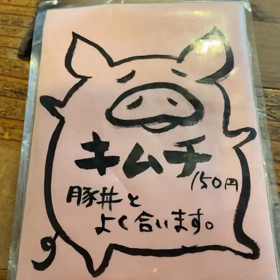 キムチ
150円
豚丼と
よく合います。